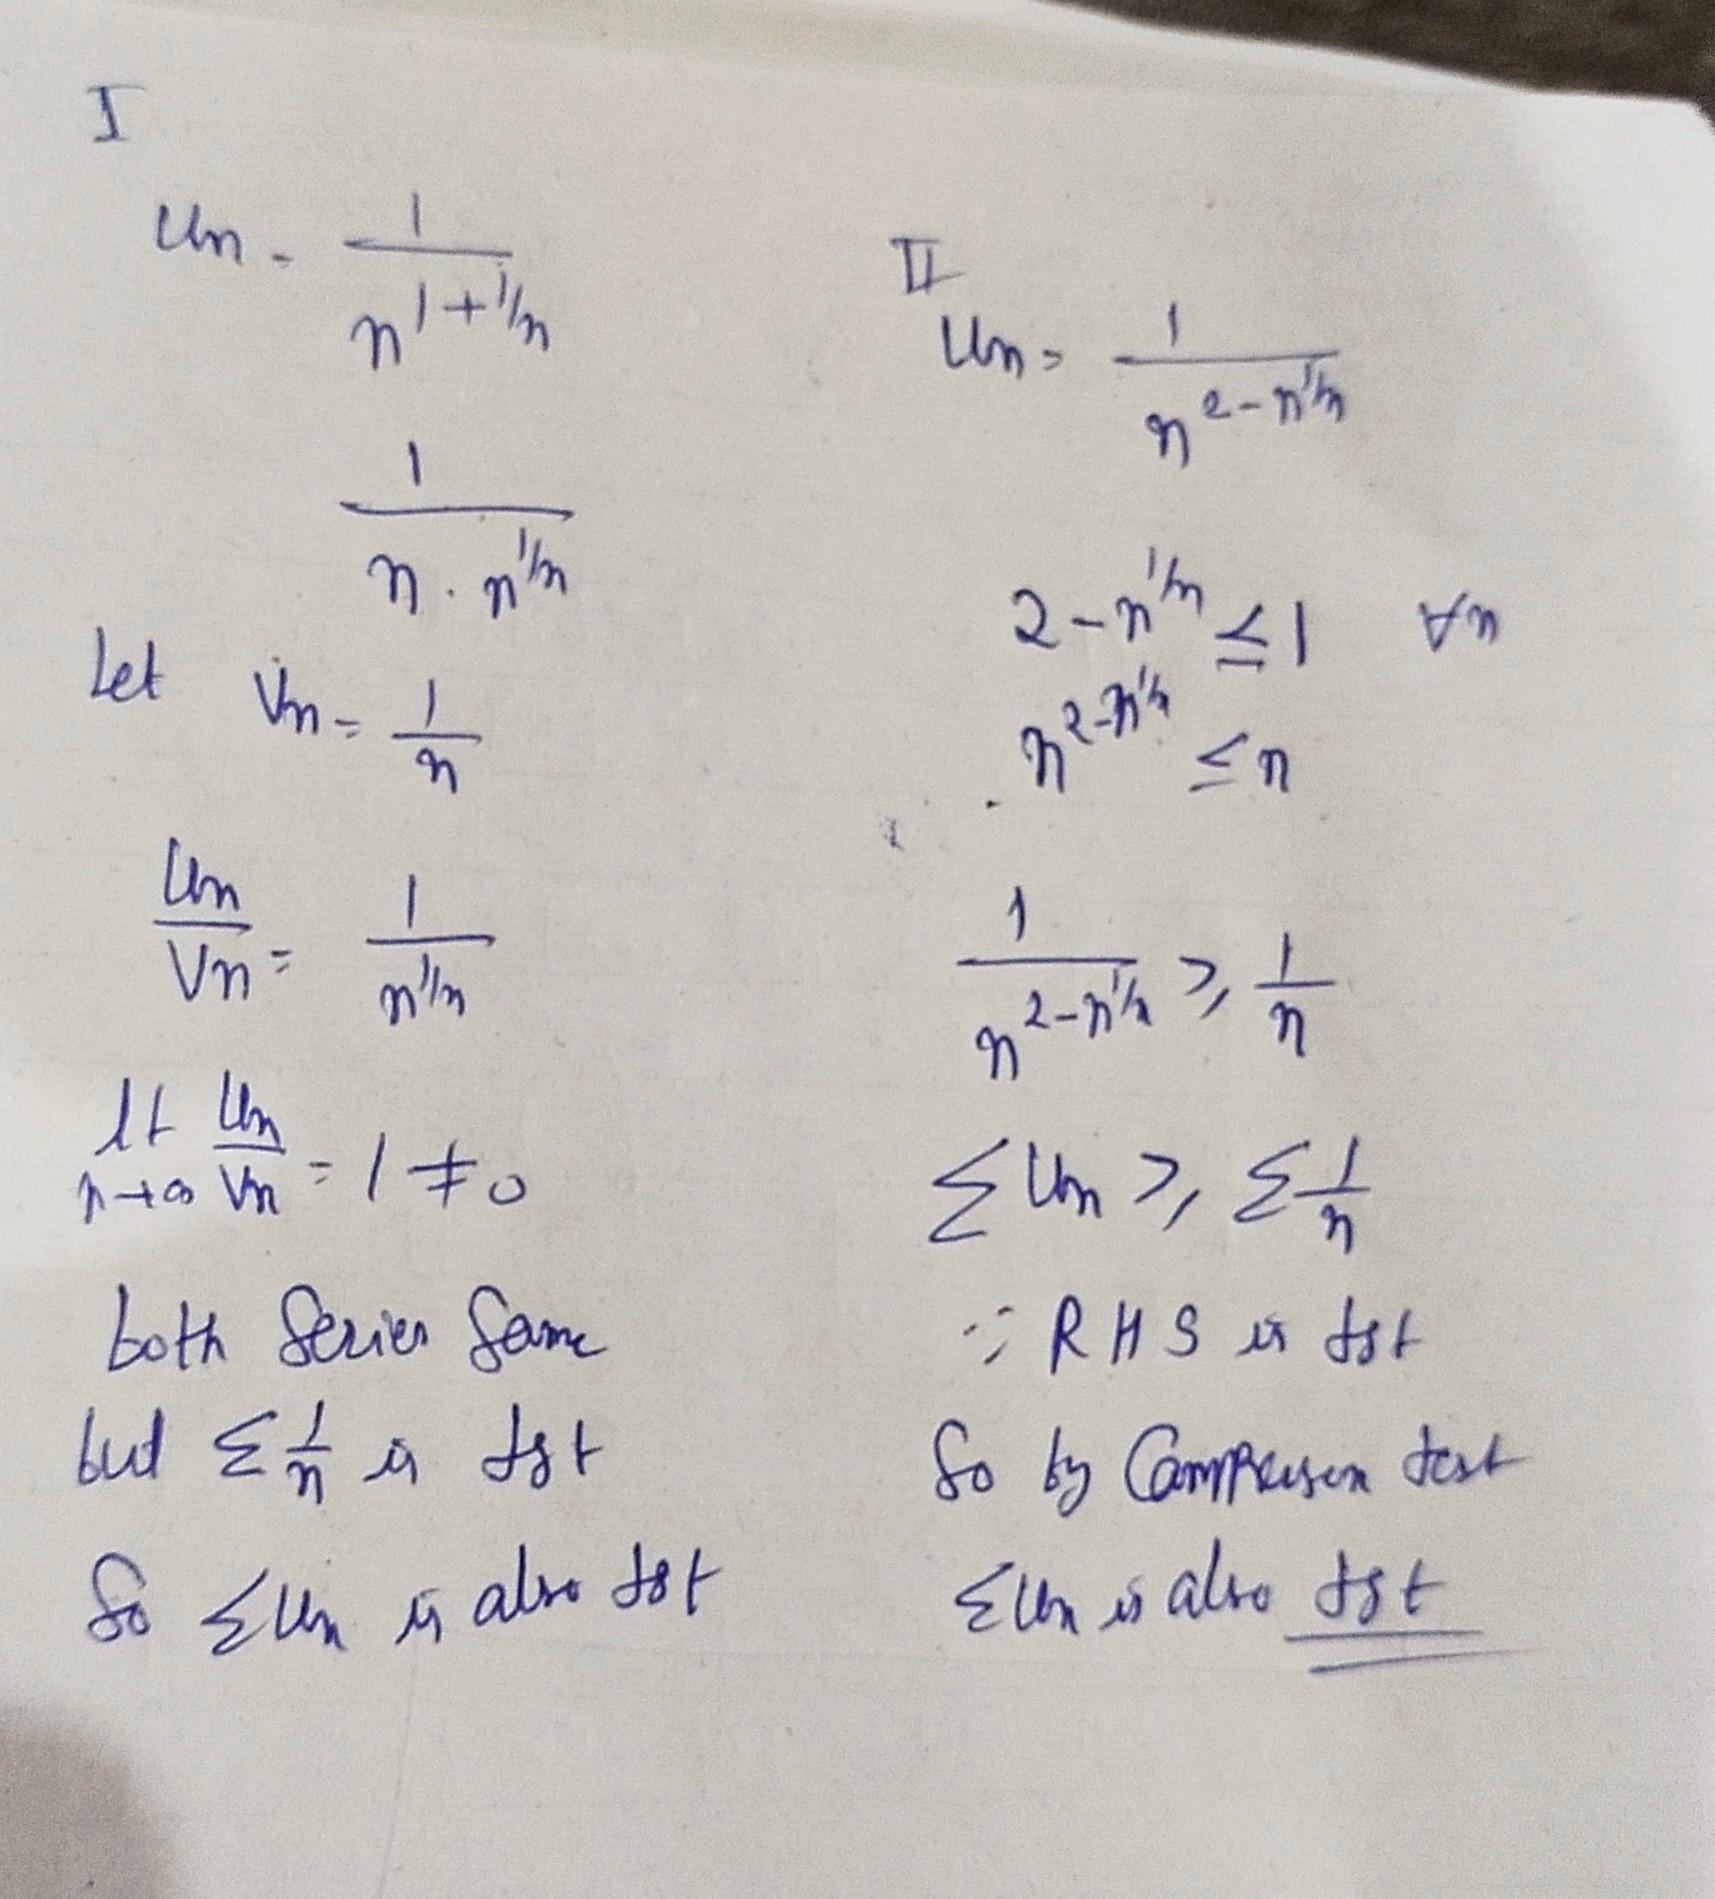 I
Un = 1/n^(1+1/n)
1/(n . n^(1/n))
Let Vn = 1/n
Un/Vn = 1/n^(1/n)
lt n→∞ Un/Vn = 1 ≠ 0
both Series Same
but Σ 1/n is dgt
So ΣUn is also dgt
II
Un = 1/n^(2-n^(1/n))
2-n^(1/n) ≤ 1 ∀n
n^(2-n^(1/n)) ≤ n
1/n^(2-n^(1/n)) ≥ 1/n
ΣUn ≥ Σ 1/n
∵ RHS is dgt
So by Comparison test
ΣUn is also dgt